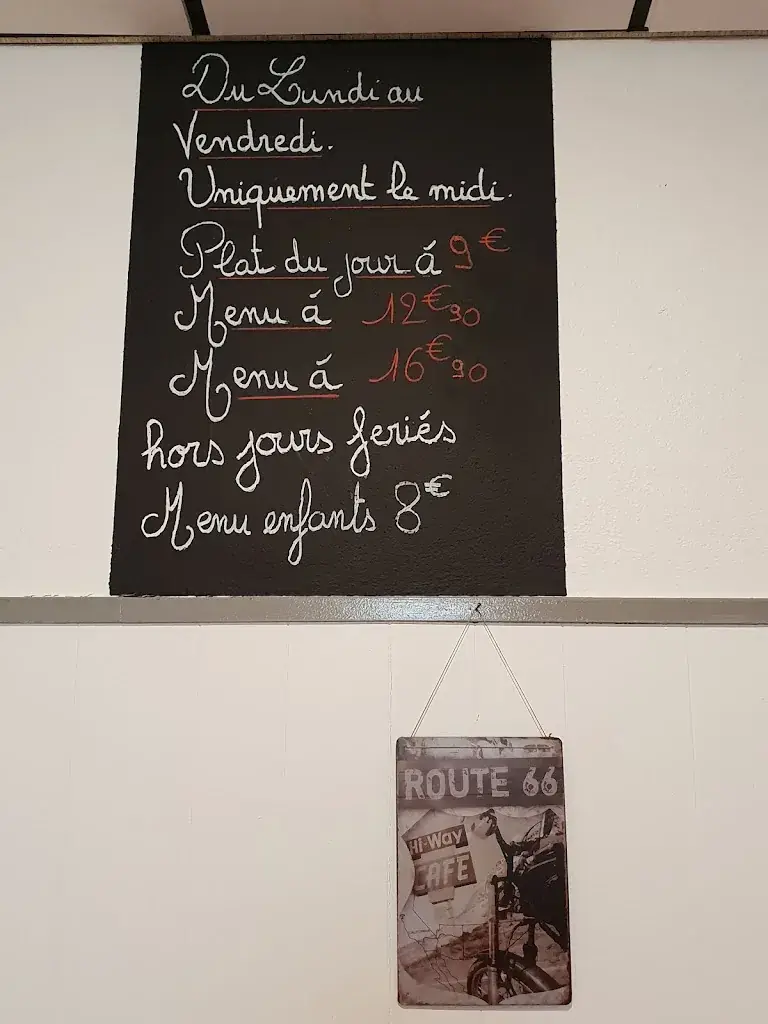 Du Lundi au
Vendredi.
Uniquement le midi.
Plat du jour á 9€
Menu á 12€90
Menu á 16€90
hors jours feriés
Menu enfants 8€
ROUTE 66
Hi-Way
CAFE